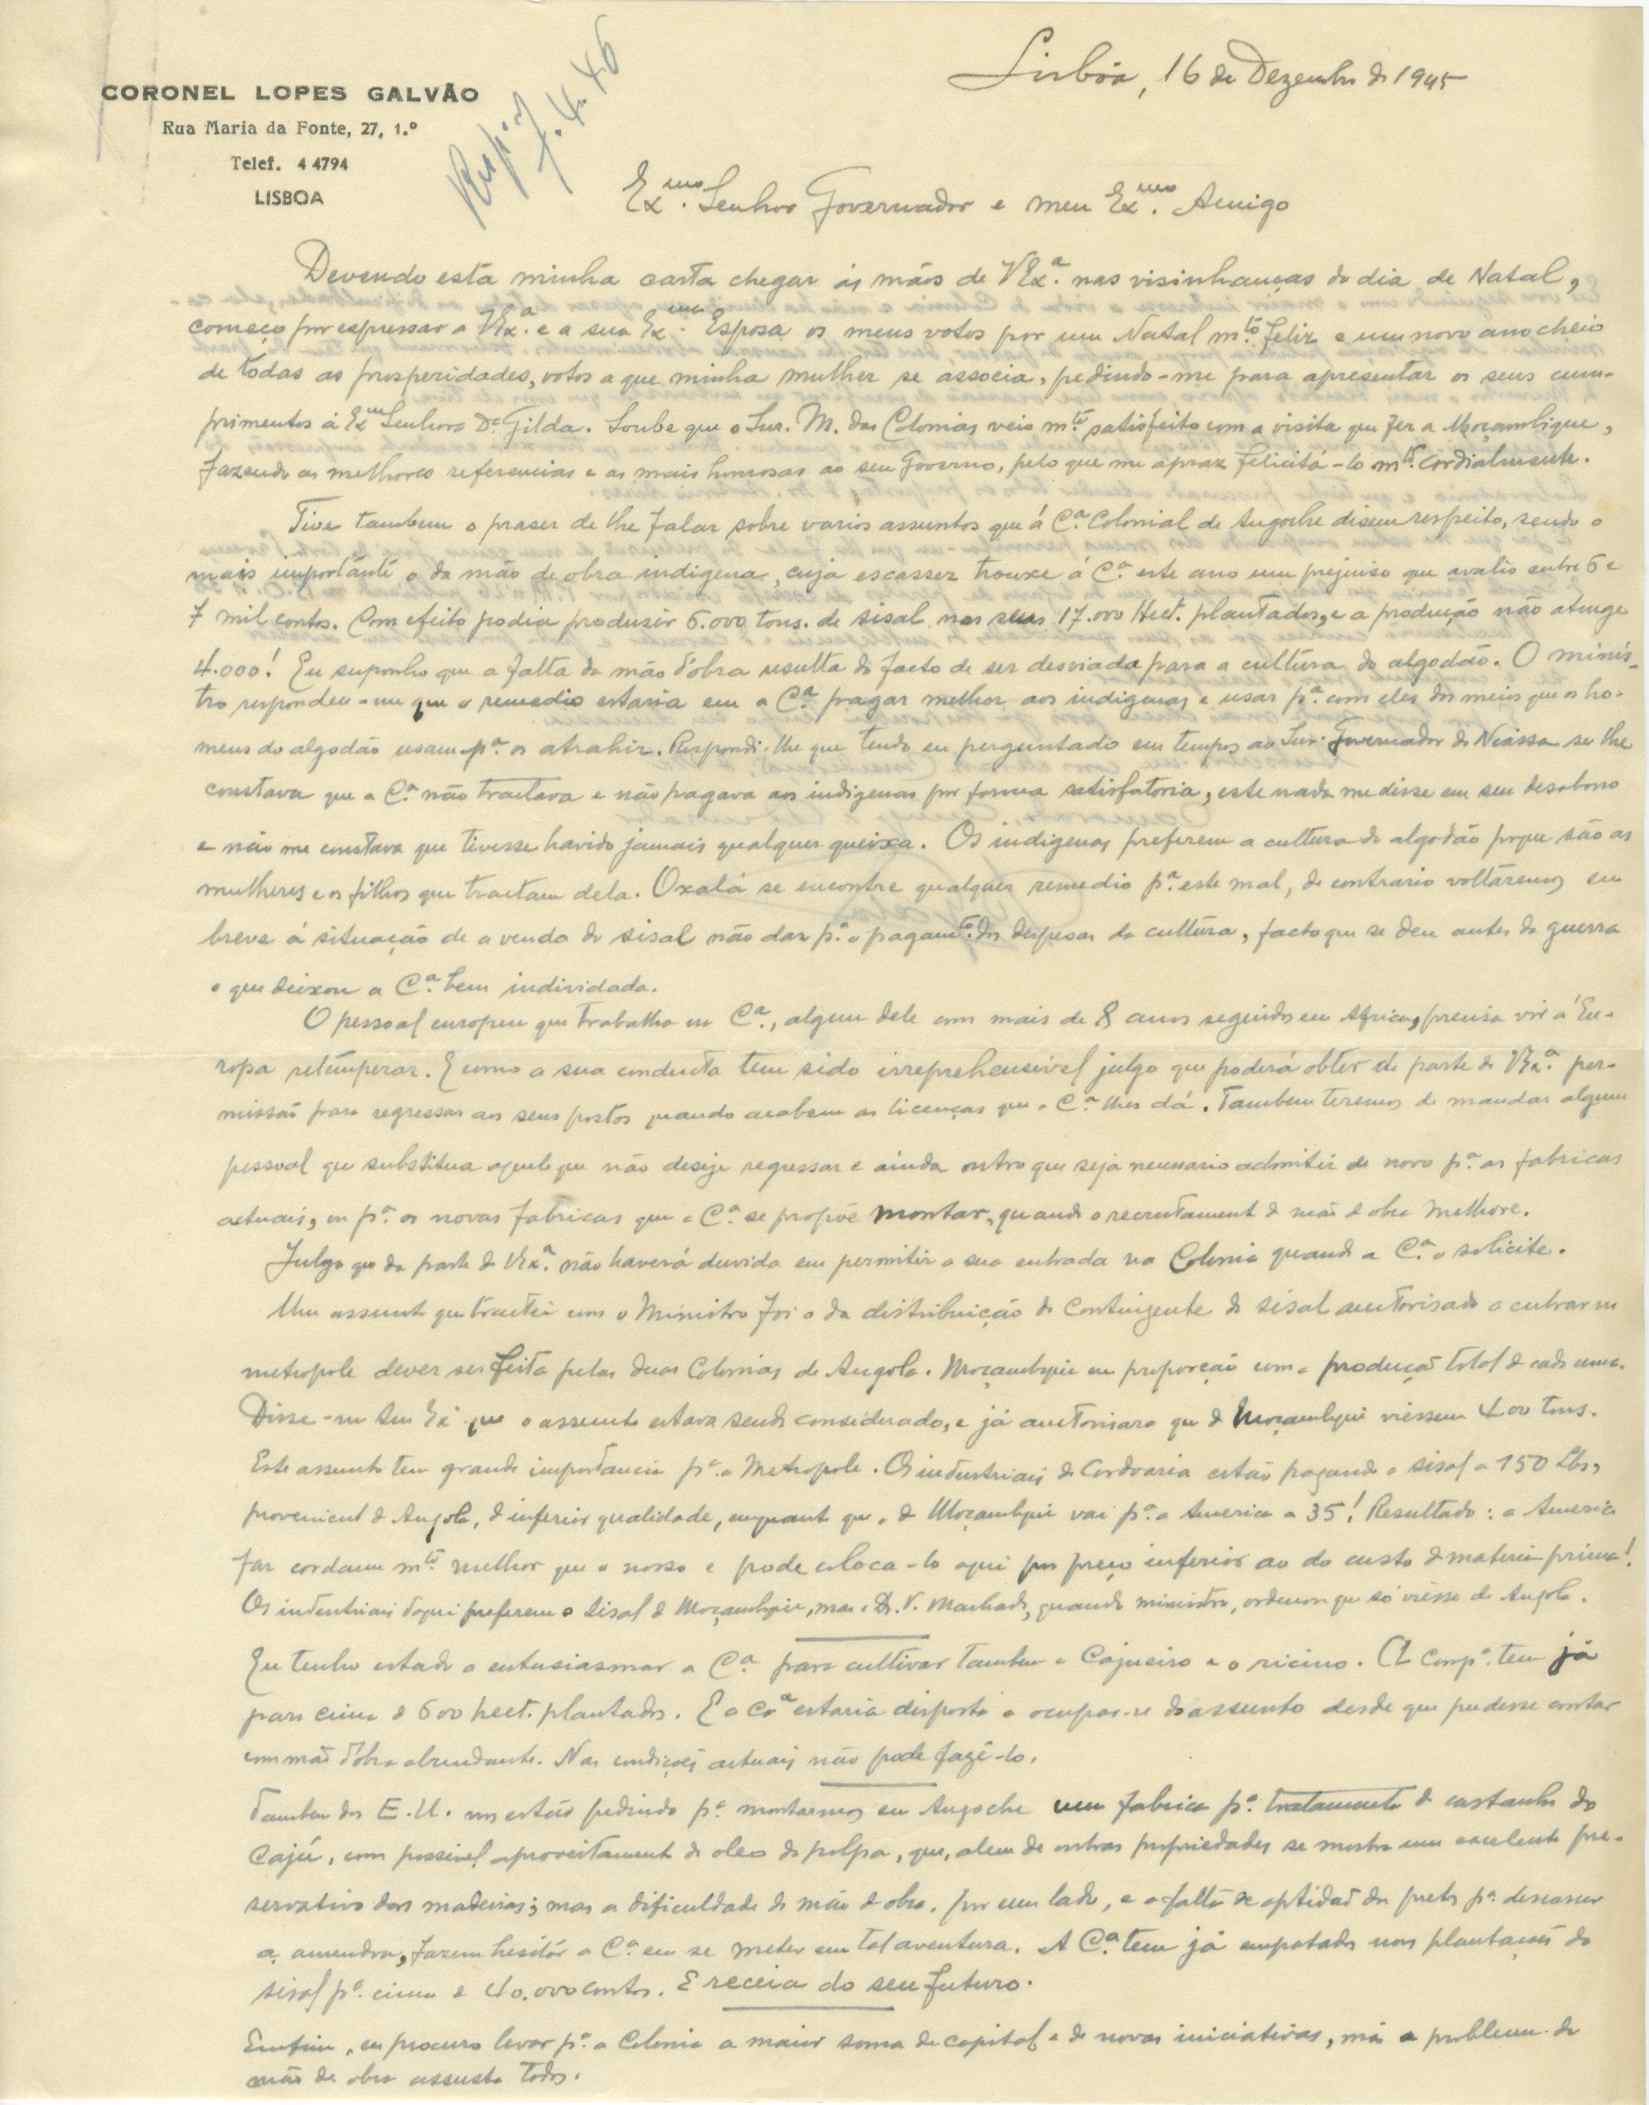 CORONEL LOPES GALVÃO
Rua Maria da Fonte, 27, 1.º
Telef. 4 4794
LISBOA
Resp.
7.4.46
Lisbôa, 16 de Dezembro de 1945
Ex.mo Senhor Governador e meu Ex.mo Amigo
Devendo esta minha carta chegar ás mãos de VEx.ª nas visinhanças do dia de Natal,
começo por expressar a VEx.ª e a sua Ex.ma Esposa os meus votos por um Natal m.to feliz e um novo ano cheio
de todas as prosperidades, votos a que minha mulher se associa, pedindo-me para apresentar os seus cum-
primentos á Ex.ma Senhora D.ª Gilda. Soube que o Snr. M. das Colonias veio m.to satisfeito com a visita que fez a Moçambique,
fazendo as melhores referencias e as mais honrosas ao seu Governo, pelo que me apraz felicitá-lo m.to cordialmente.
Tive tambem o praser de lhe falar sobre varios assuntos que á C.ª Colonial de Angoche disem respeito, sendo o
mais importante o da mão de obra indigena, cuja escassez trouxe á C.ª este ano um prejuiso que avalio entre 6 e
7 mil contos. Com efeito podia produsir 6.000 tons. de sisal nos seus 17.000 Hect. plantados, e a produção não atinge
4.000! Eu suponho que a falta da mão d'obra resulta do facto de ser desviada para a cultura do algodão. O minis-
tro respondeu-me que o remedio estaria em a C.ª pagar melhor aos indigenas e usar p.ª com eles dos meios que os ho-
mens do algodão usam p.ª os atrahir. Respondi-lhe que tendo eu perguntado em tempos ao Snr. Governador do Niassa se lhe
constava que a C.ª não tractava e não pagava aos indigenas por forma satisfatoria, este nada me disse em seu desabono
e não me constava que tivesse havido jamais qualquer queixa. Os indigenas preferem a cultura do algodão porque são as
mulheres e os filhos que tractam dela. Oxalá se encontre qualquer remedio p.ª este mal, de contrario voltaremos em
breve á situação de a venda do sisal não dar p.ª o pagam.to das despesas da cultura, facto que se deu antes da guerra
e que deixou a C.ª bem individada.
O pessoal europeu que trabalha na C.ª, algum dele com mais de 8 anos seguidos em Africa, precisa vir á Eu-
ropa retemperar. E como a sua conducta tem sido irreprehensivel julgo que poderá obter de parte de VEx.ª per-
missão para regressar aos seus postos quando acabem as licenças que a C.ª lhes dá. Tambem teremos de mandar algum
pessoal que substitua aquele que não deseje regressar e ainda outro que seja necessario admitir de novo p.ª as fabricas
actuais, ou p.ª as novas fabricas que a C.ª se propõe montar, quando o recrutamento de mão de obra melhore.
Julgo que da parte de VEx.ª não haverá duvida em permitir a sua entrada na Colonia quando a C.ª o solicite.
Um assunto que tractei com o Ministro foi o da distribuição do contingente de sisal autorisado a entrar na
metropole dever ser feita pelas duas Colonias de Angola e Moçambique em proporção com a produção total de cada uma.
Disse-me Sua Ex.ª que o assunto estava sendo considerado, e já autorisara que de Moçambique viessem 400 tons.
Este assunto tem grande importancia p.ª a Metropole. Os industriais de Cordoaria estão pagando o sisal a 150 Lbs,
proveniente de Angola, de inferior qualidade, enquanto que o de Moçambique vai p.ª a America a 35! Resultado: a America
faz cordame m.to melhor que o nosso e pode coloca-lo aqui por preço inferior ao do custo da materia prima!
Os industriais daqui preferem o Sisal de Moçambique, mas o Dr. V. Machado, quando ministro, ordenou que só viesse de Angola.
Eu tenho estado a entusiasmar a C.ª para cultivar tambem o Cajueiro e o ricino. A Comp.ª tem já
para cima de 600 hect. plantados. E a Cª estaria disposta a ocupar-se do assunto desde que pudesse contar
com mão d'obra abundante. Nas condições actuais não pode fazê-lo.
Tambem dos E.U. nos estão pedindo p.ª montarmos em Angoche uma fabrica p.ª tratamento de castanha de
Cajú, com possivel aproveitamento do oleo da polpa, que, alem de outras propriedades se mostra um excelente pre-
servativo das madeiras; mas a dificuldade de mão de obra, por um lado, e a falta de aptidão dos pretos p.ª descascar
a amendoa, fazem hesitar a C.ª em se meter em tal aventura. A C.ª tem já empatados nas plantações do
sisal p.ª cima de 40.000 contos. E receia do seu futuro.
Emfim, eu procuro levar p.ª a Colonia a maior soma de capital e de novas iniciativas, mas o problema da
mão de obra assusta todos.